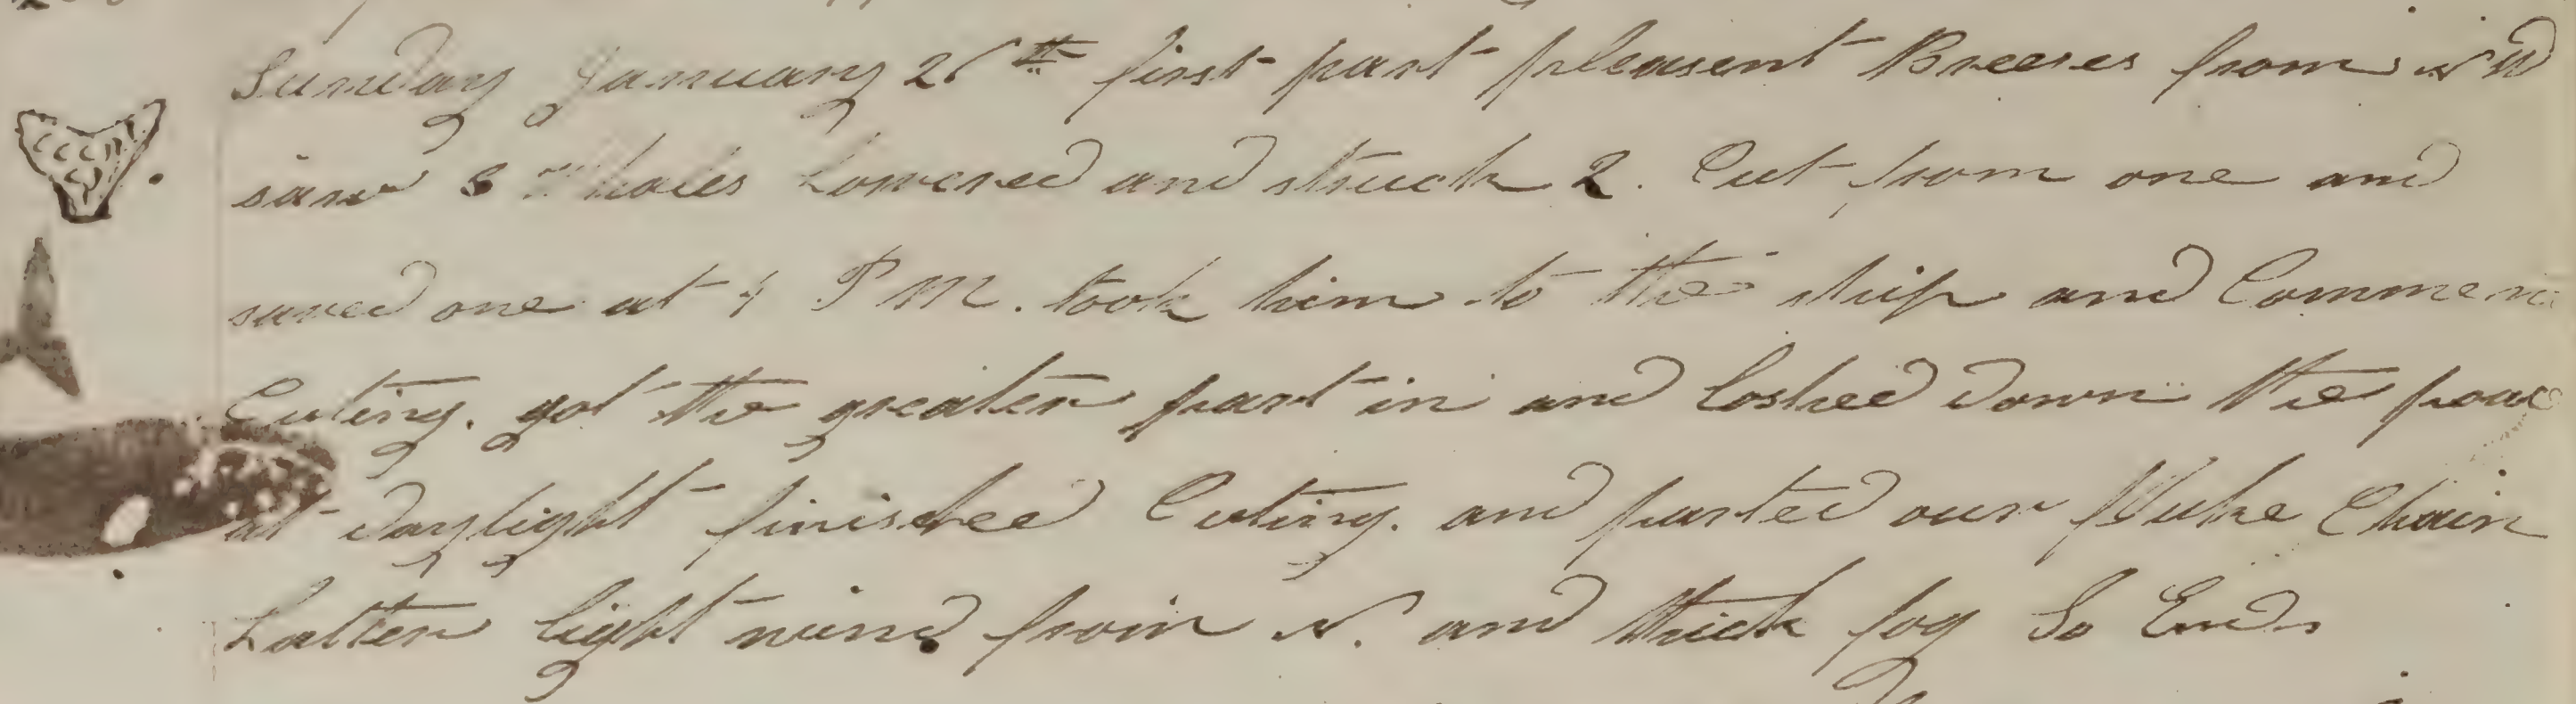 Sunday January 26th first part pleasent Breeses from NW
saw 3 Whales Lowered and struck 2. Cut from one and
saved one at 4 PM. took him to the ship and Commenc
Cuting. got the greater part in and Loshed down the
at daylight finisheed Cuting. and parted our fluke Chain
Latter light wind from N. and thick fog So Ends